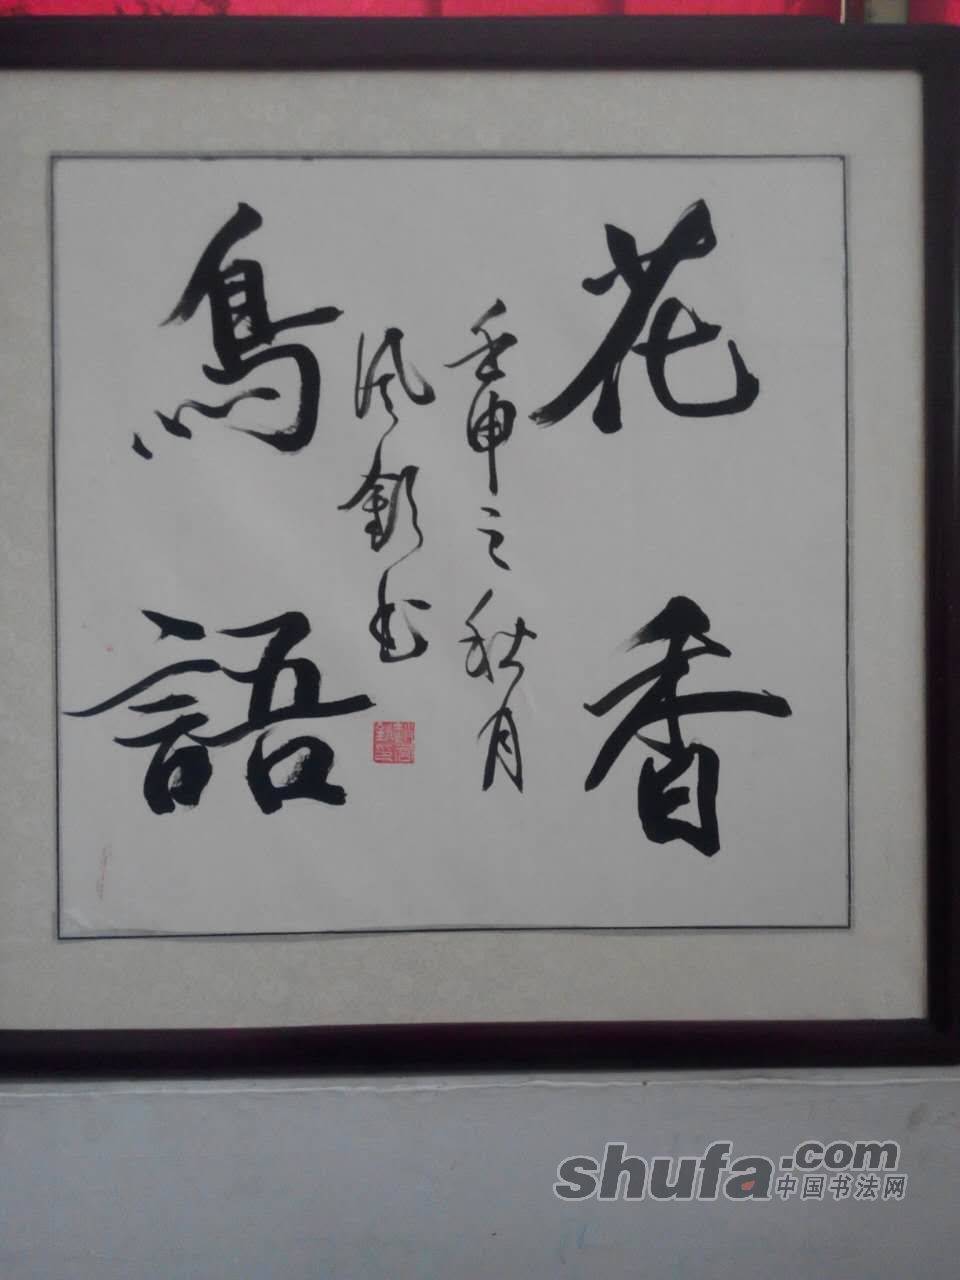 花香
壬申之秋月
风钦书
鳥語
shufa.com
中国书法网